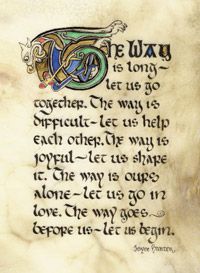 The Way
is long–
let us go
together. The way is
difficult–let us help
each other. The way is
joyful–let us share
it. The way is ours
alone–let us go in
love. The way goes
before us–let us begin.